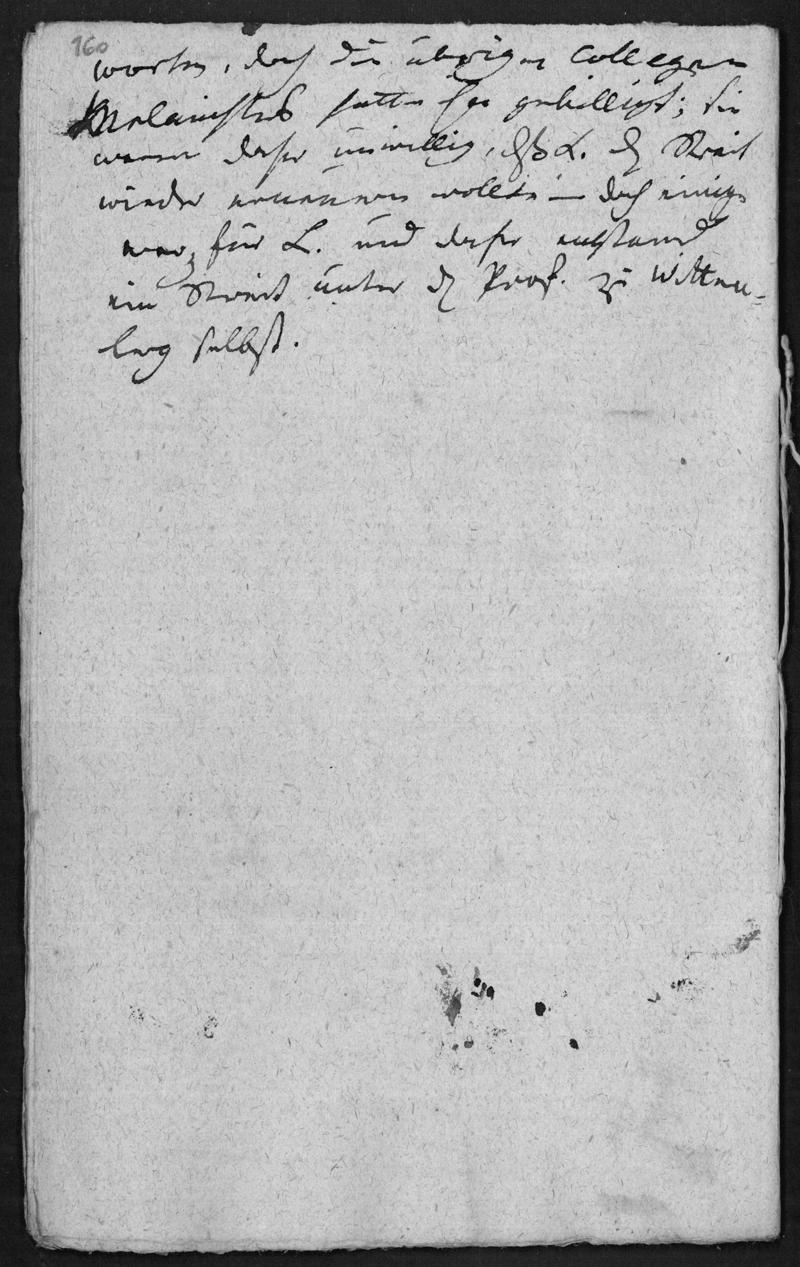 160
worten, doch die übrigen Collegen
Melanchtons hatten sie gebilligt; sie
waren daher unwillig, dß L. d Streit
wieder erneuern wollte – doch einige
waren für L. und daher entstand
ein Streit unter d Prof. zu Witten-
berg selbst.